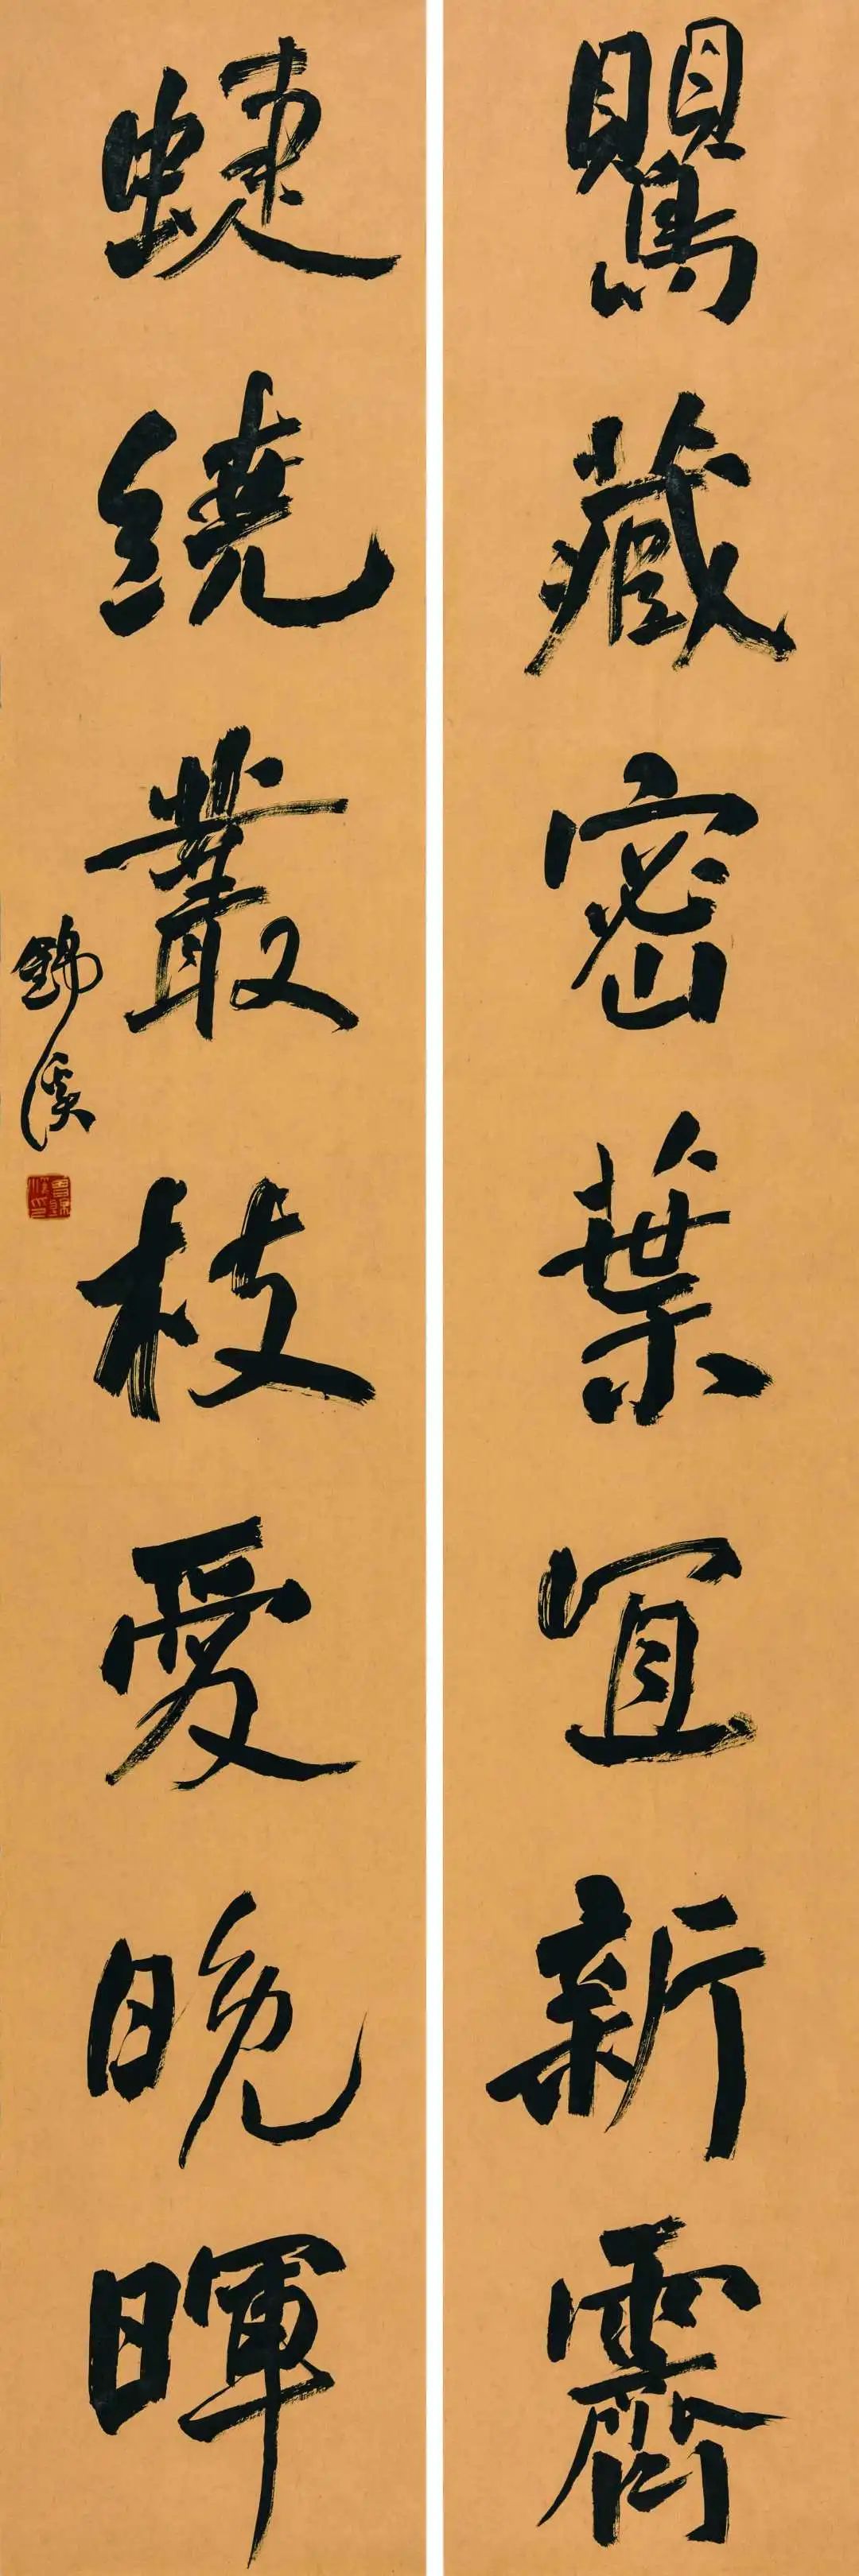 鸎藏密葉宜新霽
蜨繞叢枝愛晚暉
錦溪